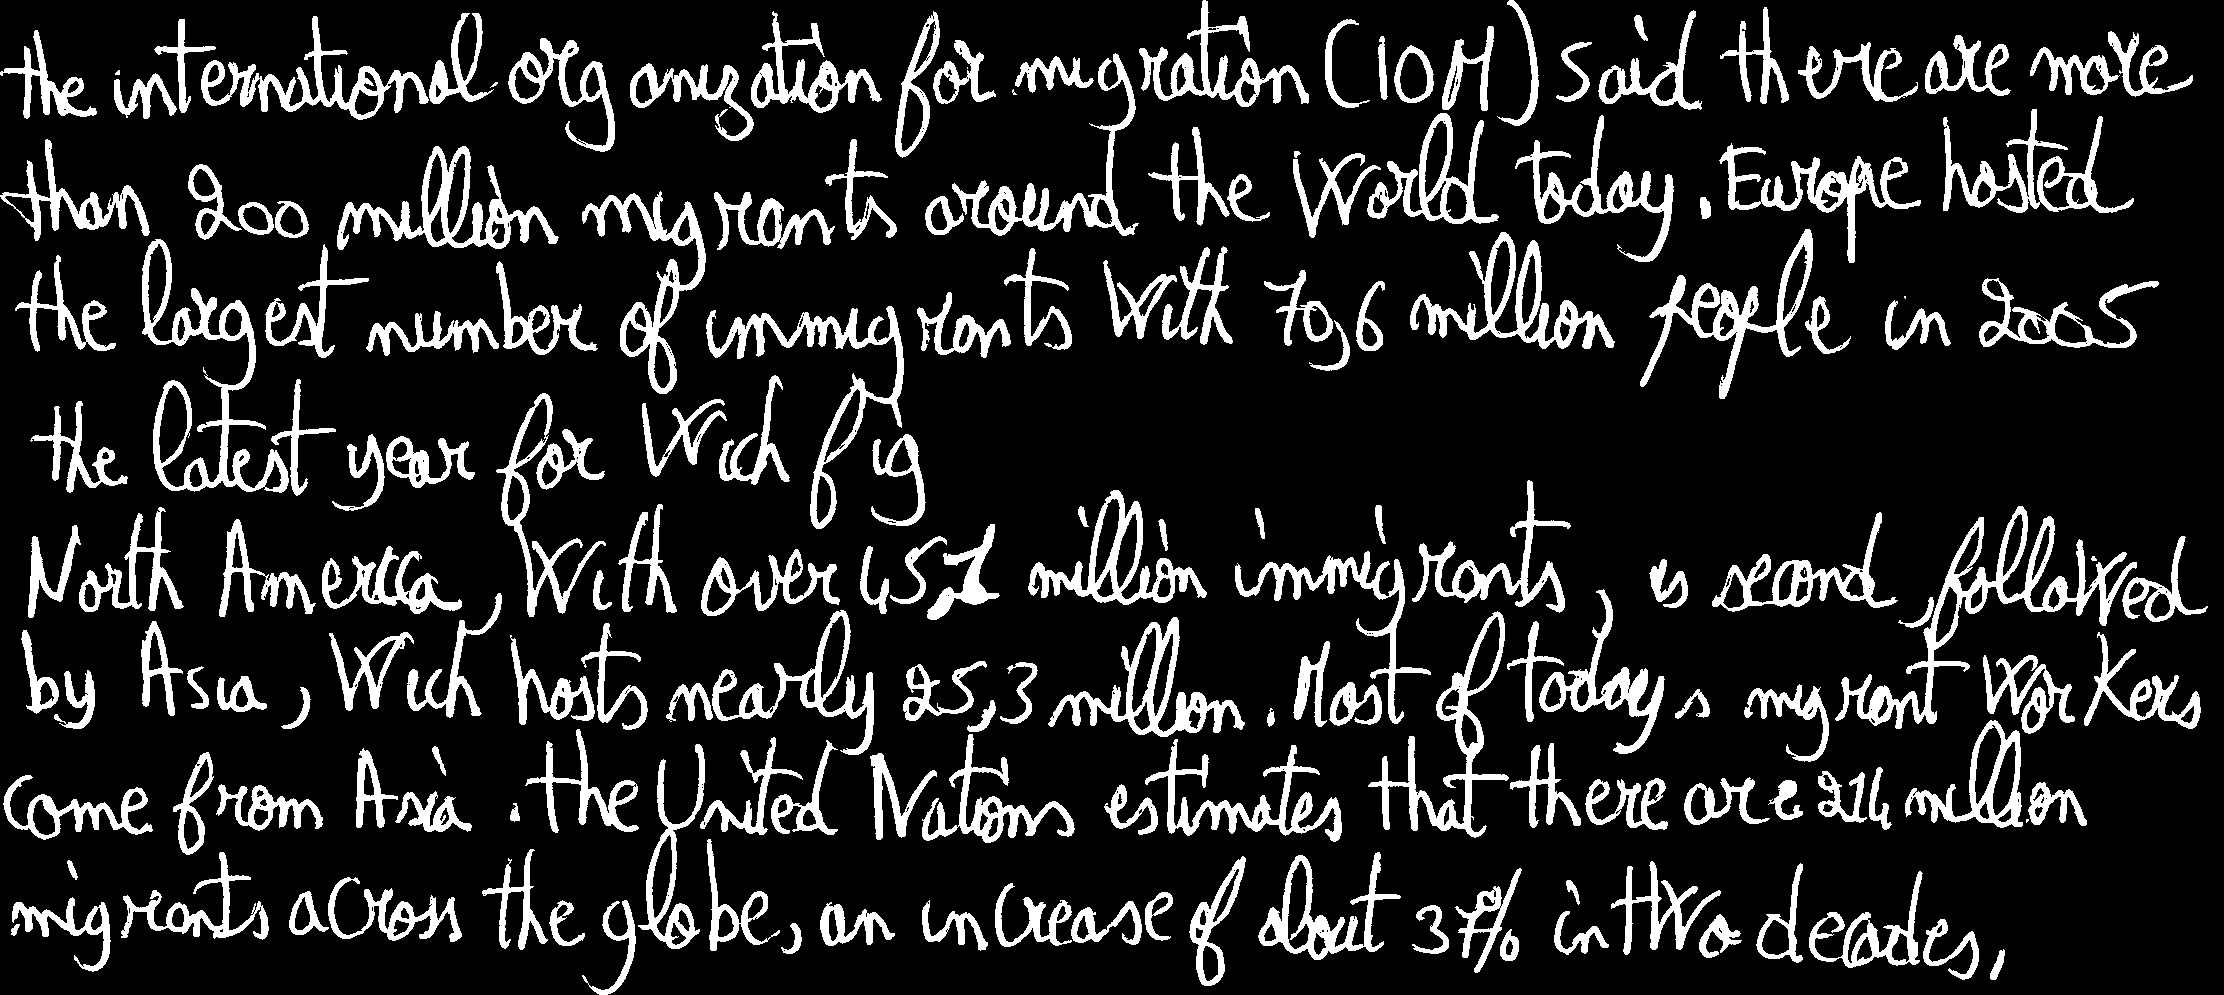 the international organization for migration (IOM) said there are more
than 200 million migrants around the World today. Europe hosted
the largest number of immigrants With 70,6 million people in 2005
the latest year for Wich fig
North America, With over 45,1 million immigrants, is second, followed
by Asia, Wich hosts nearly 25,3 million. Most of today s migrant Workers
come from Asia. the United Nations estimates that there are 214 million
migrants across the globe, an increase of about 37% in tWo decades,